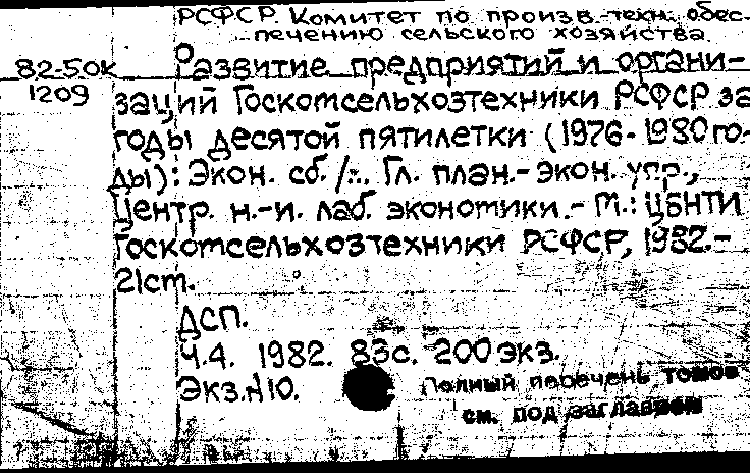 РСФСР. Комитет по произв.-техн. обес-
печению сельского хозяйства.
82-50К
1209
Развитие предприятий и органи-
заций Госкомсельхозтехники РСФСР за
годы десятой пятилетки (1976-1980 го-
ды): Экон. сб. /... Гл. план.-экон. упр.,
Центр. н.-и. лаб. экономики.- М.: ЦБНТИ
Госкомсельхозтехники РСФСР, 1982.-
21см.
ДСП.
Ч.4. 1982. 83с. 200 экз.
Экз.№10.
Полный перечень томов
см. под заглавием